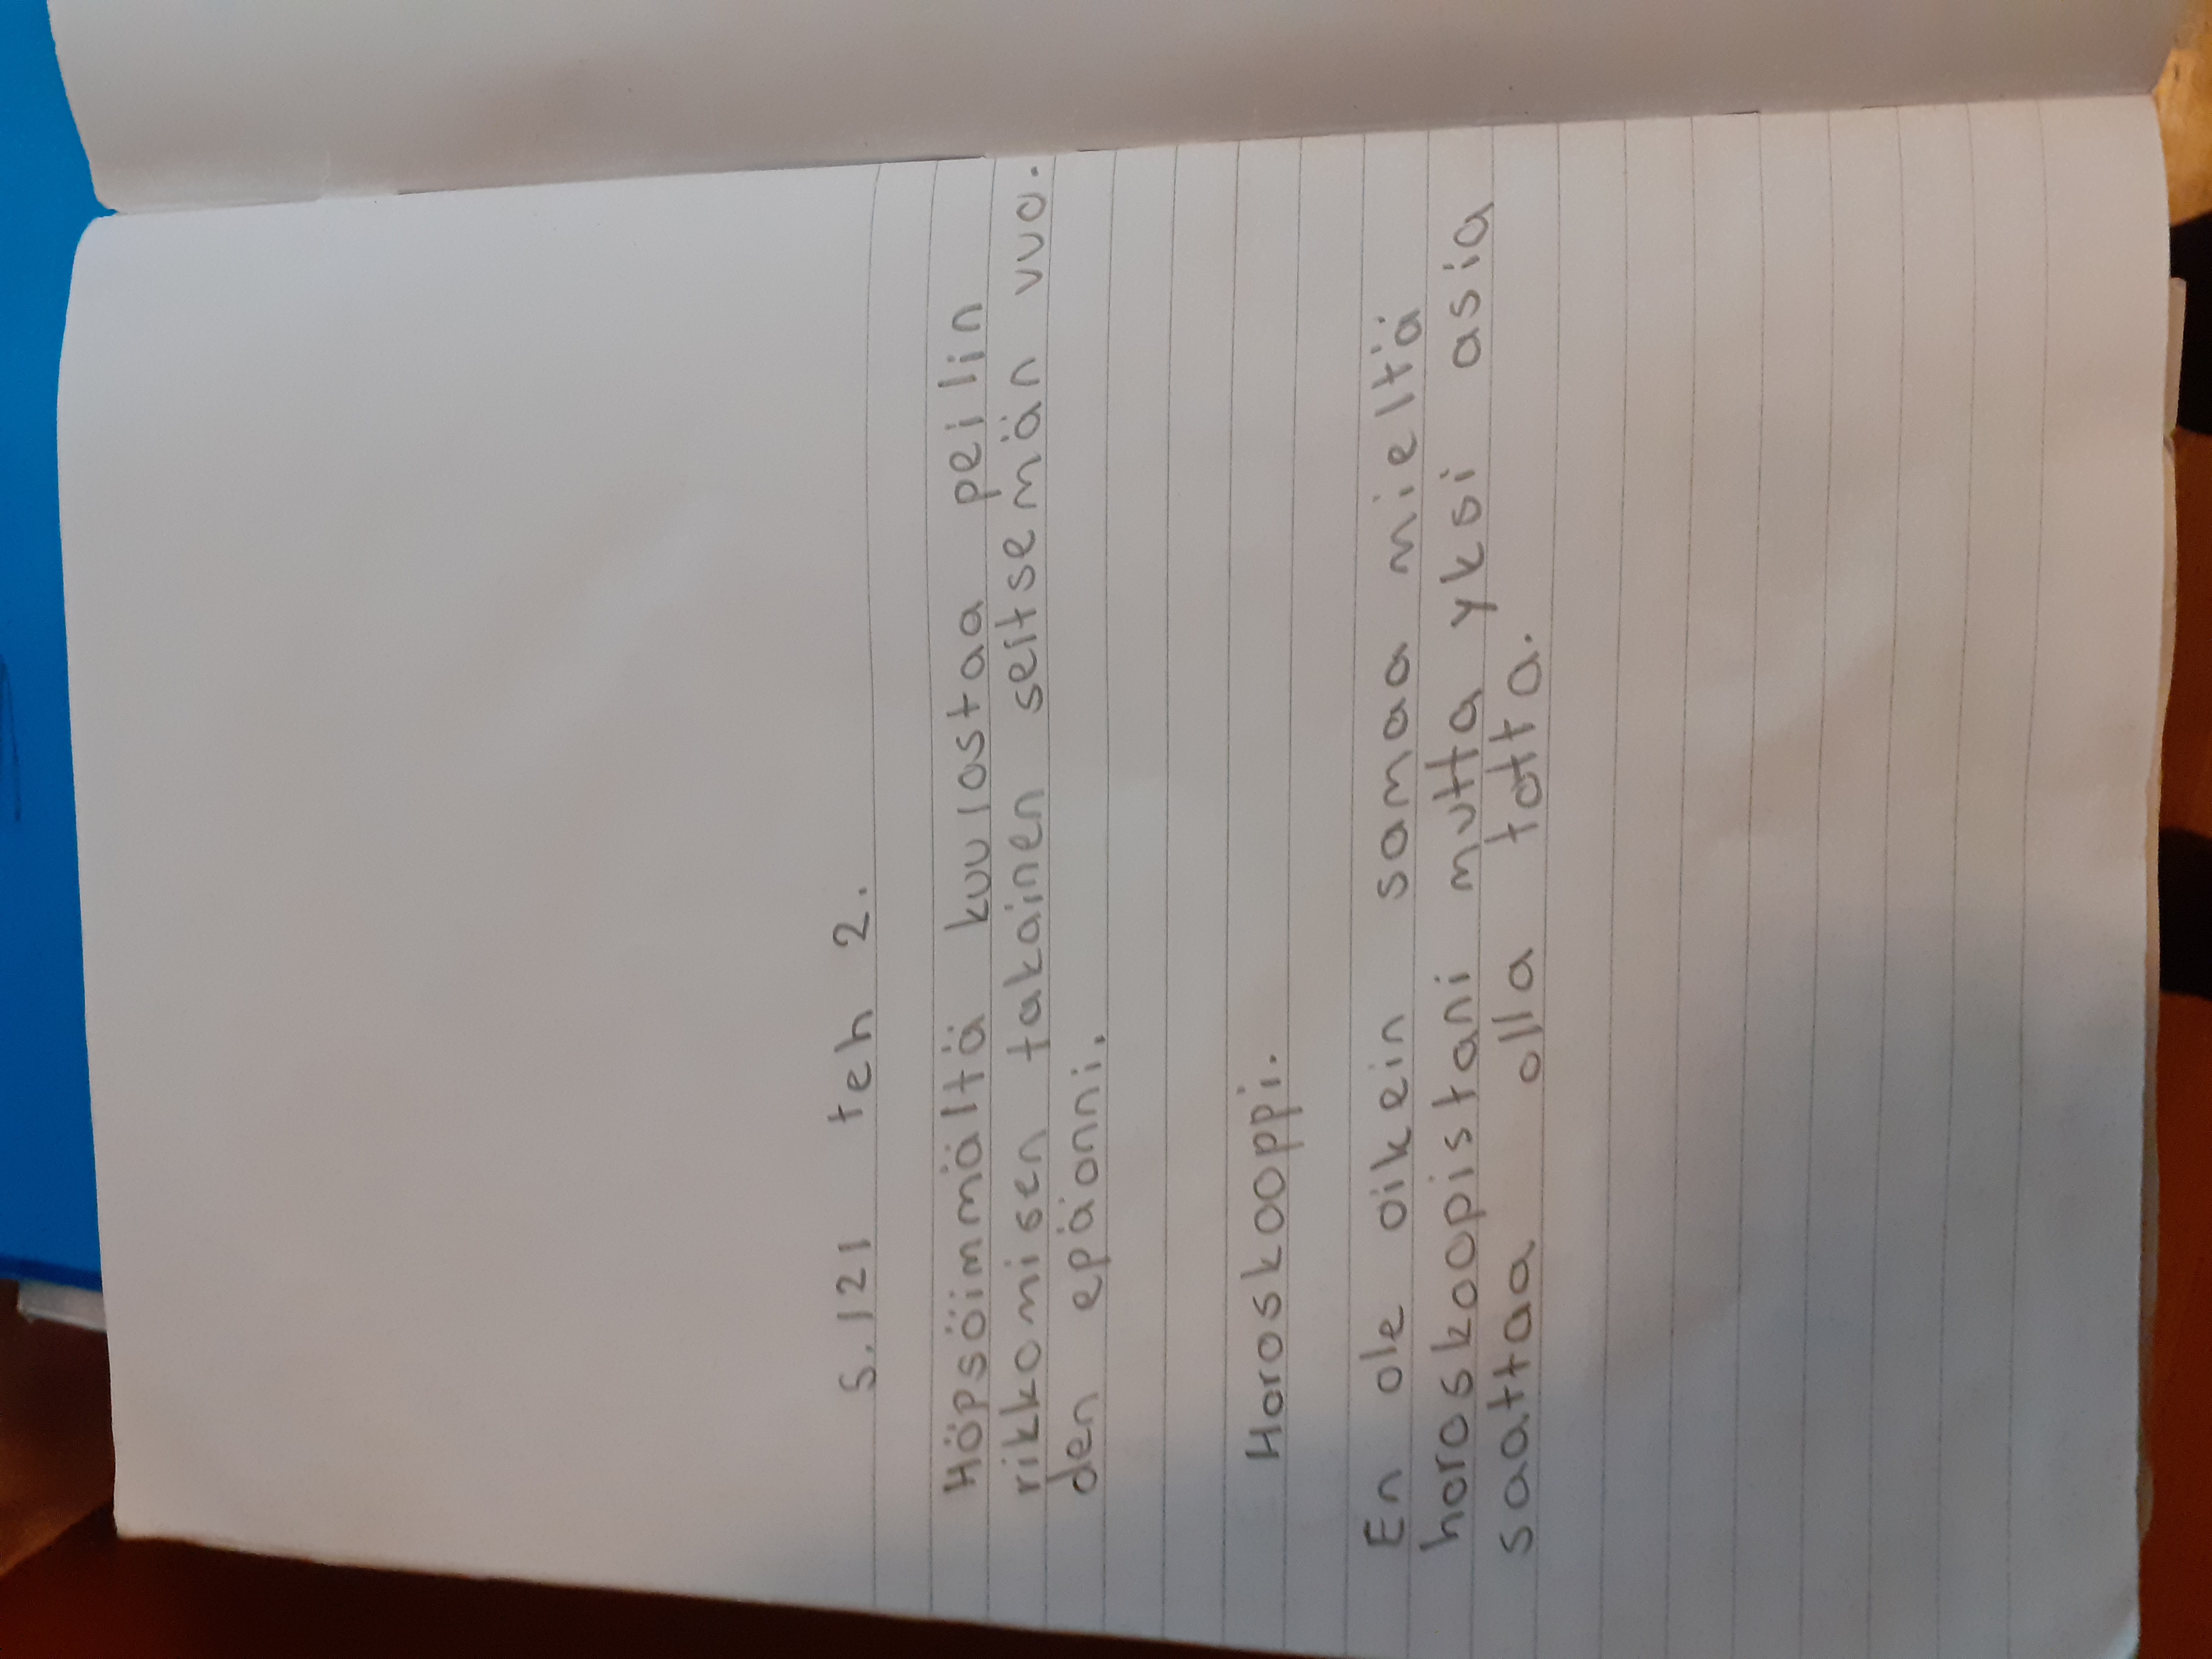 s.121 teh 2.
Höpsöimmältä kuulostaa peilin
rikkomisen takainen seitsemän vuo.
den epäonni.
Horoskooppi.
En ole oikein samaa mieltä
horoskoopistani mutta yksi asia
saattaa olla totta.